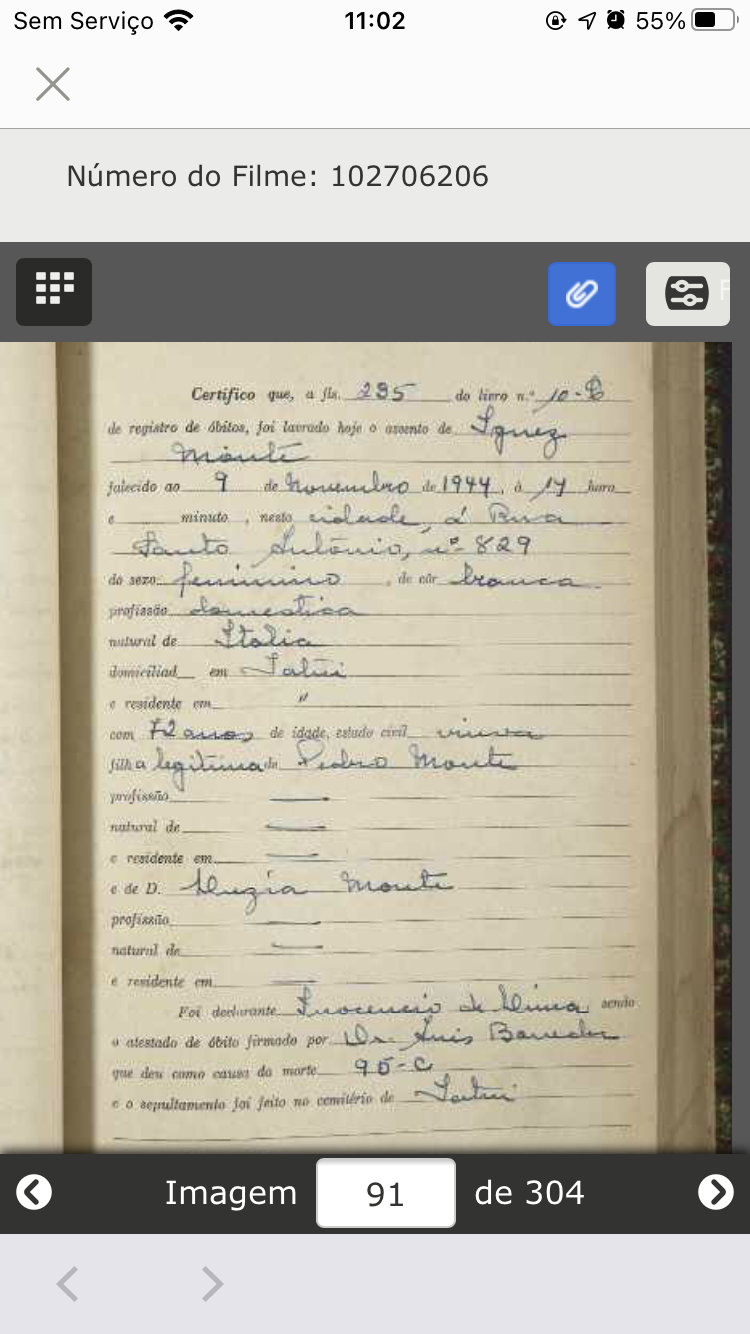 Sem Serviço 11:02 55%
Número do Filme: 102706206
Certifico que, a fls. 235 do livro n.º 10-C
de registro de óbitos, foi lavrado hoje o assento de Ignez
Monte
falecido ao 9 de Novembro de 1944, á 17 hora
e minuto, nesta cidade, á Rua
Santo Antônio, nº 829
do sexo feminino, de côr branca
profissão domestica
natural de Italia
domiciliad em Tatuí
e residente em "
com 72 anos de idade, estado civil viuva
filha legitima de Pedro Monte
profissão —
natural de —
e residente em —
e de D. Luzia Monte
profissão —
natural de —
e residente em —
Foi declarante Inocencio de Lima sendo
o atestado de óbito firmado por Dr. Luis
que deu como causa da morte 95-C
e o sepultamento foi feito no cemitério de Tatuí
Imagem 91 de 304